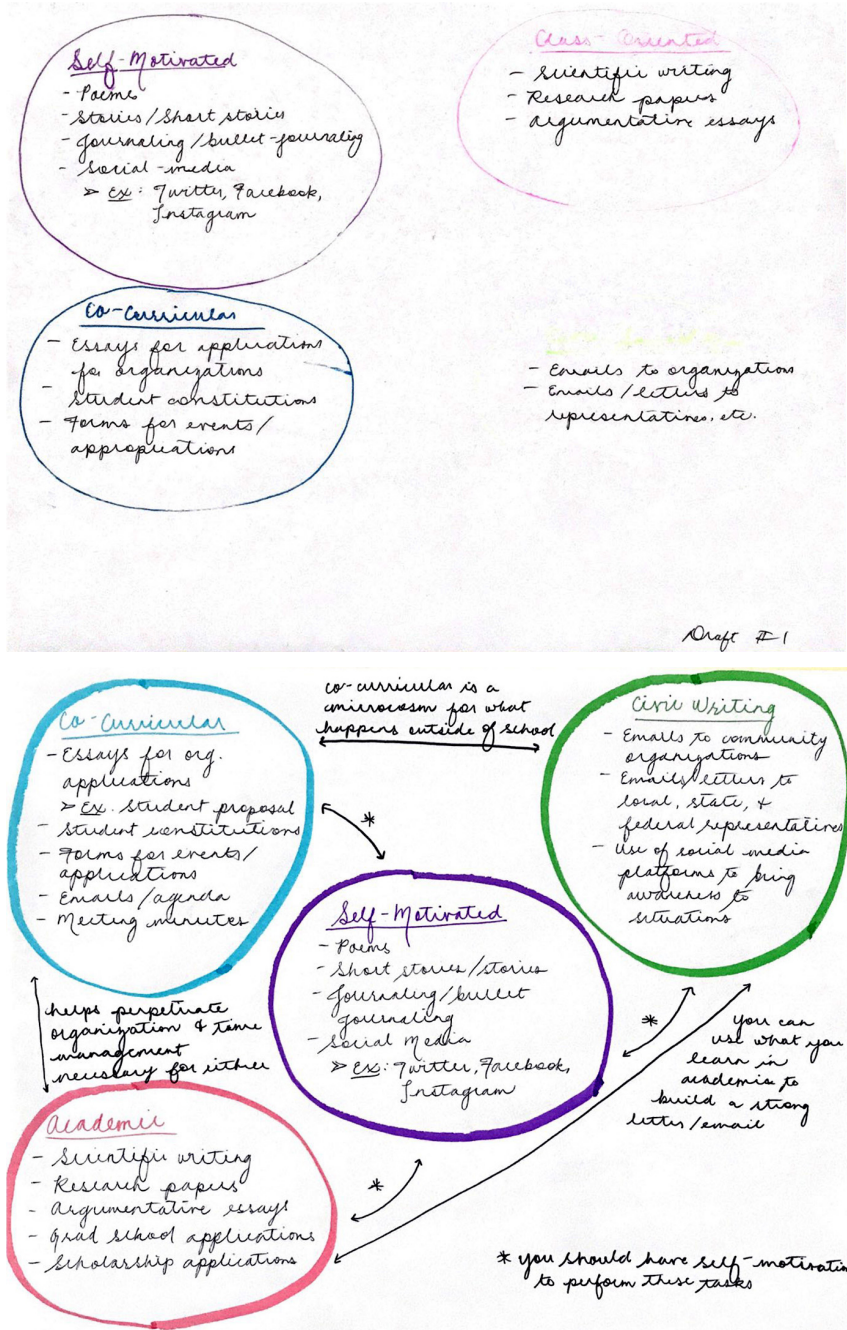 Self-Motivated
- Poems
- Stories/Short stories
- Journaling/bullet-journaling
- Social-media
➢ Ex: Twitter, Facebook,
Instagram
Class-Oriented
- Scientific writing
- Research papers
- Argumentative essays
Co-Curricular
- Essays for applications
for organizations
- Student constitutions
- Forms for events/
appropriations
- Emails to organizations
- Emails/letters to
representatives, etc.
Draft #1
Co-Curricular
- Essays for org.
applications
➢ Ex. Student proposal
- Student constitutions
- Forms for events/
applications
- Emails/agenda
- Meeting minutes
co-curricular is a
microcosm for what
happens outside of school
Civic Writing
- Emails to community
organizations
- Emails/letters to
local, state, &
federal representatives
- Use of social media
platforms to bring
awareness to
situations
*
Self-Motivated
- Poems
- Short stories/stories
- Journaling/bullet
journaling
- Social Media
➢ Ex: Twitter, Facebook,
Instagram
helps perpetuate
organization & time
management
necessary for either
*
You can
use what you
learn in
academia to
build a strong
letter/email
Academic
- Scientific writing
- Research papers
- Argumentative essays
- Grad school applications
- Scholarship applications
*
* you should have self-motivation
to perform these tasks